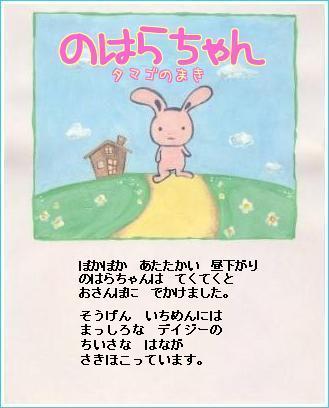 のはらちゃん
タマゴのまき
ぽかぽか　あたたかい　昼下がり
のはらちゃんは　てくてくと
おさんぽに　でかけました。
そうげん　いちめんには
まっしろな　デイジーの
ちいさな　はなが
さきほこっています。